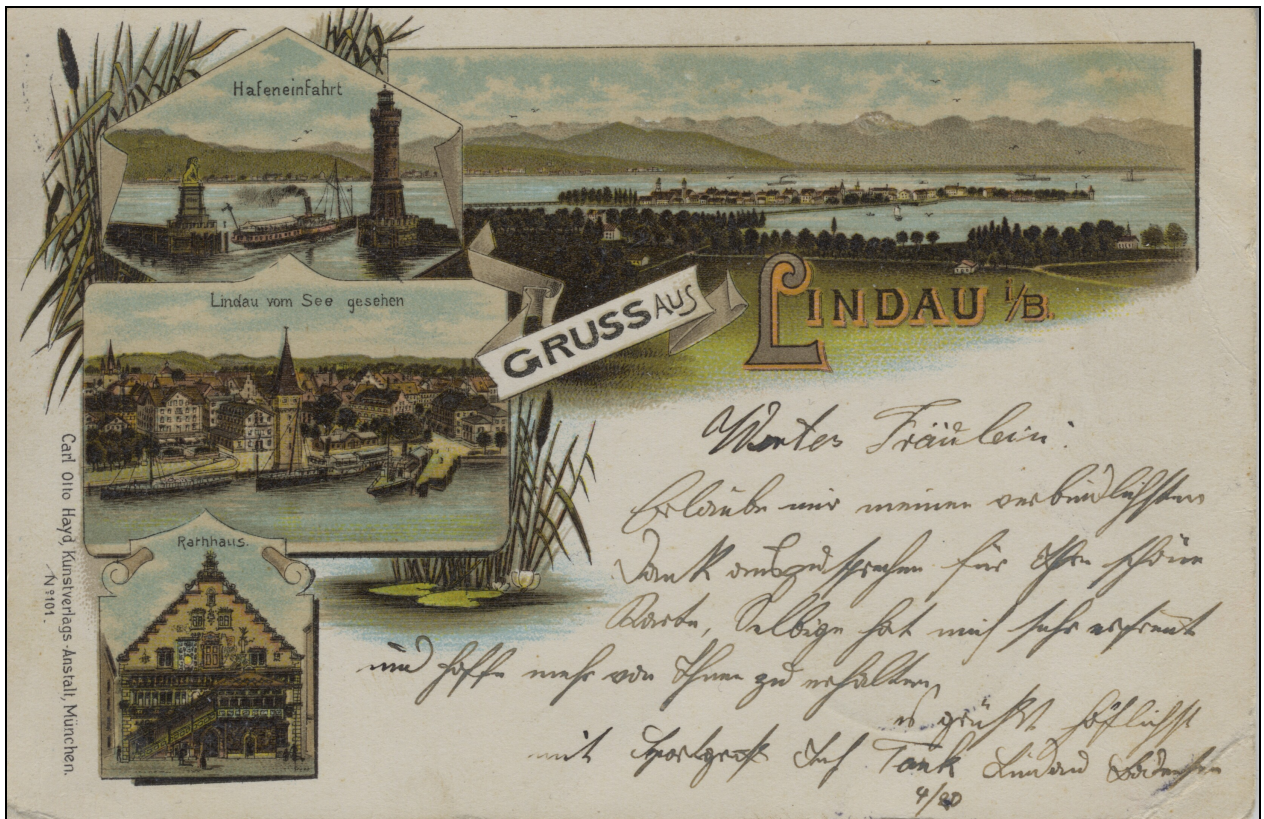 Hafeneinfahrt
Lindau vom See gesehen
Rathhaus.
GRUSS AUS
LINDAU i/B.
Carl Otto Hayd, Kunstverlags-Anstalt, München.
Nº 101.
Wertes Fräulein!
Erlaube mir meinen verbindlichsten
Dank auszusprechen für Ihre schöne
Karte, Selbige hat mich sehr erfreut
und hoffe mehr von Ihnen zu erhalten,
es grüßt höflichst
mit Tank Lindau Bodensee